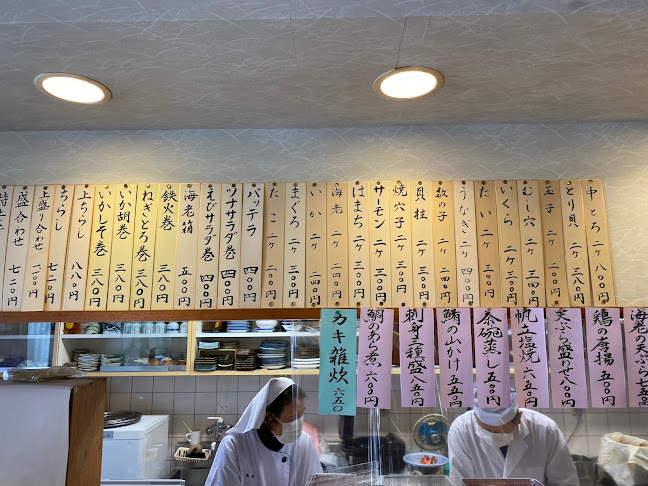 中とろ 二ケ 八〇〇円
とり貝 二ケ 円
玉子 二ケ 円
むし穴 二ケ 三四〇円
いくら 二ケ 五〇〇円
たい 二ケ 三〇〇円
うなぎ 二ケ 四〇〇円
数の子 二ケ 四〇〇円
貝柱 二ケ 三〇〇円
焼穴子 二ケ 三〇〇円
サーモン 二ケ 三〇〇円
はまち 二ケ 三〇〇円
海老 二ケ 二四〇円
いか 二ケ 二四〇円
まぐろ 二ケ 三〇〇円
たこ 二ケ 円
バッテラ 四〇〇円
ツナサラダ巻 四〇〇円
えびサラダ巻 四〇〇円
海老箱 五〇〇円
鉄火巻 三八〇円
ねぎとろ巻 三八〇円
いか胡巻 三八〇円
いかしそ巻 三八〇円
上ちらし 八八〇円
ちらし 円
上盛り合わせ 円
盛り合わせ 七二〇円
海老の天ぷら 七五
鶏の唐揚 六五〇円
天ぷら盛り合せ 八五〇円
帆立塩焼 六五〇円
茶碗蒸し 五五〇円
鮪の山かけ 五五〇円
刺身三種盛 八五〇円
鯛のあら煮 六〇〇円
カキ雑炊 六五〇